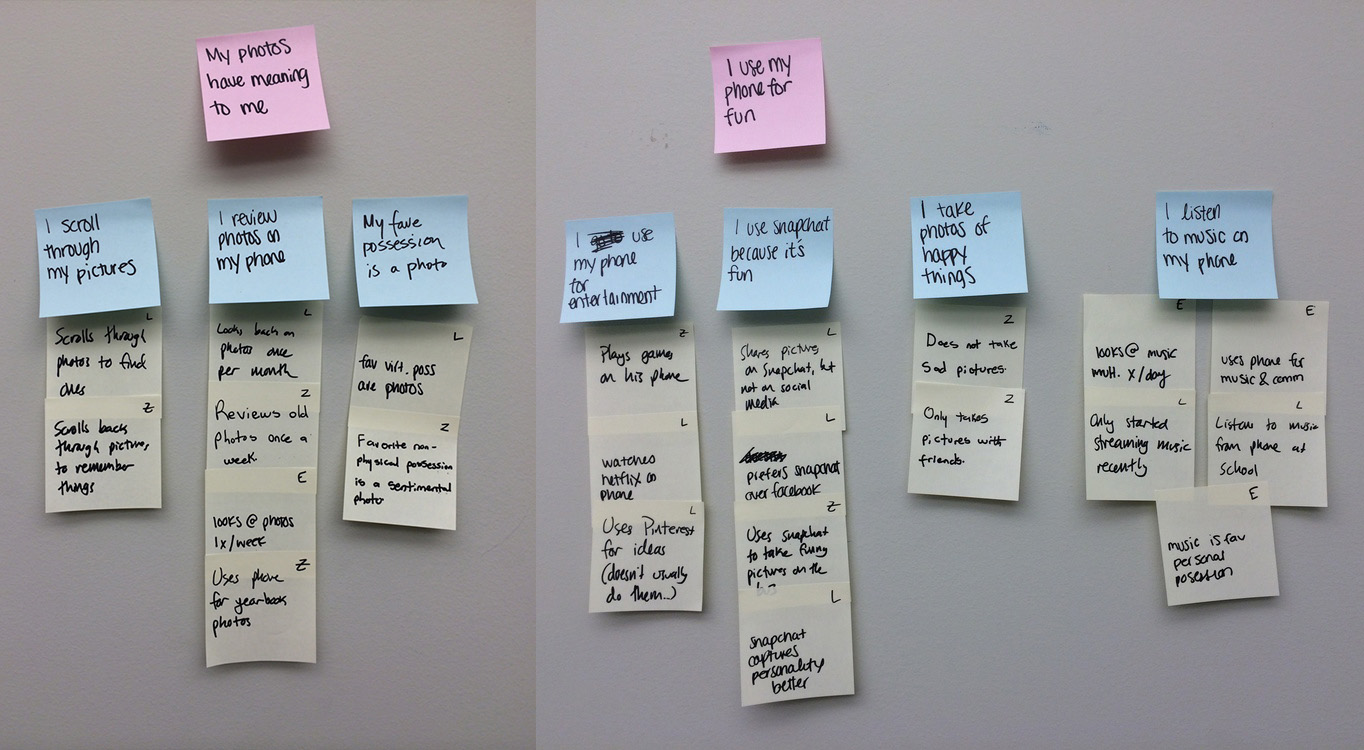 My photos
have meaning
to me
I scroll
through
my pictures
L
Scrolls through
photos to find
ones
Z
Scrolls back
through pictures
to remember
things
I review
photos on
my phone
L
Looks back on
photos once
per month
Z
Reviews old
photos once a
week
E
looks @ photos
1x/week
Z
Uses phone
for yearbook
photos
My fave
possession
is a photo
L
fav virt. poss
are photos
Z
Favorite non-
physical possession
is a sentimental
photo
I use my
phone for
fun
I use
my phone
for
entertainment
Z
Plays games
on his phone
L
watches
netflix on
phone
L
Uses Pinterest
for ideas
(doesn't usually
do them..)
I use snapchat
because it's
fun
L
Shares pictures
on Snapchat, but
not on social
media
L
prefers snapchat
over facebook
Z
Uses snapchat
to take funny
pictures on the
bus
L
snapchat
captures
personality
better
I take
photos of
happy
things
Z
Does not take
Sad pictures.
Z
Only takes
pictures with
friends.
I listen
to music on
my phone
E
looks @ music
mult. x/day
L
Only started
streaming music
recently
E
uses phone for
music & comm
L
Listens to music
from phone at
school
E
music is fav
personal
posession